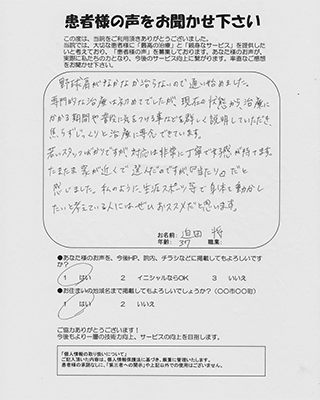 患者様の声をお聞かせ下さい
この度は、当院をご利用頂きありがとうございました。
当院では、大切な患者様に「最高の治療」と「親身なサービス」を提供したい
と考えており、「患者様の声」を募集しております。あなた様の声が、
実際に私たちの力となり、今後のサービス向上に繋がります。率直なご感想
をお聞かせ下さい！
野球肩がなかなか治らないので通い始めました。
専門的な治療は初めてでしたが、現在の状態から、治療に
かかる期間や普段に気をつける事などを詳しく説明していただき
焦らずじっくりと治療に専念できています。
若いスタッフばかりですが対応は非常に丁寧で好感が持てます。
たまたま家が近くで選んだのですが『当たり』だと
感じました。私のように、生涯スポーツ等で身体を動かし
たいと考えている人にはぜひおススメだと思います。
お名前: 迫田 将
年齢: 37 職業:
●あなた様のお声を、今後HP、院内、チラシなどに掲載してもよろしいです
か？
1 はい 2 イニシャルならOK 3 いいえ
●お住まいの地域名まで掲載してもよろしいでしょうか？（〇〇市〇〇町）
1 はい 2 いいえ
ご協力ありがとうございます！
今後もより一層の技術力向上、サービスの向上を目指します。
「個人情報の取り扱いについて」
ご記入頂いた内容は、個人情報保護法に基づき、厳重に管理いたします。
患者様の承諾なしに、「第三者への開示」や上記以外での使用はございません。